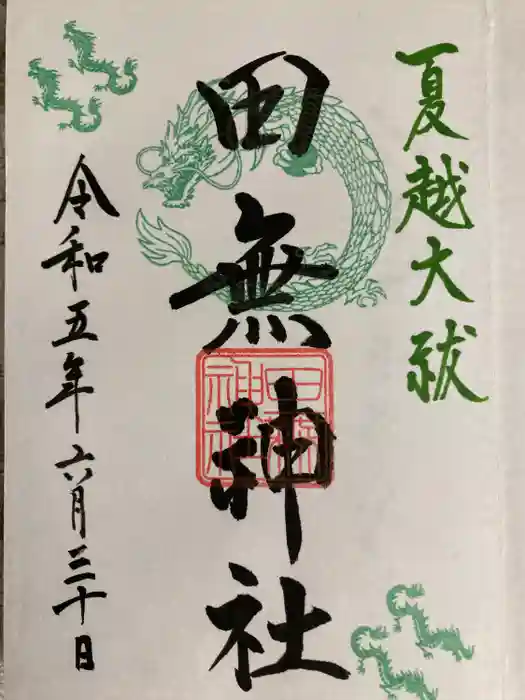 夏越大祓
田無神社
田無神社
令和五年六月三十日